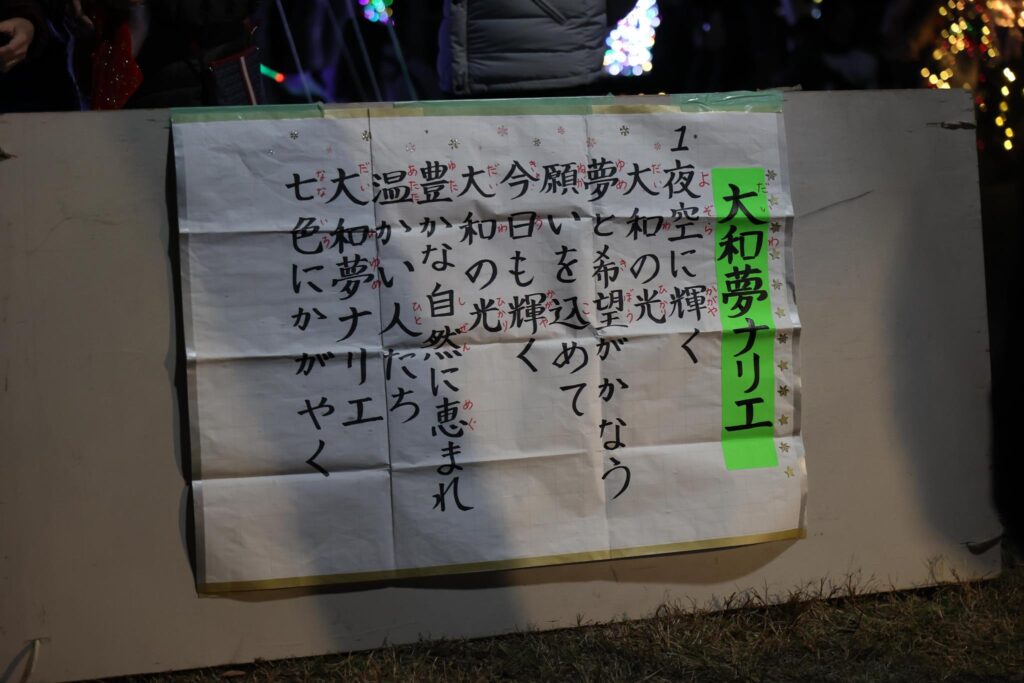 大和夢ナリエ
1夜空に輝く
大和の光
夢と希望がかなう
願いを込めて
今日も輝く
大和の光
豊かな自然に恵まれ
温かい人たち
大和夢ナリエ
七色にかがやく